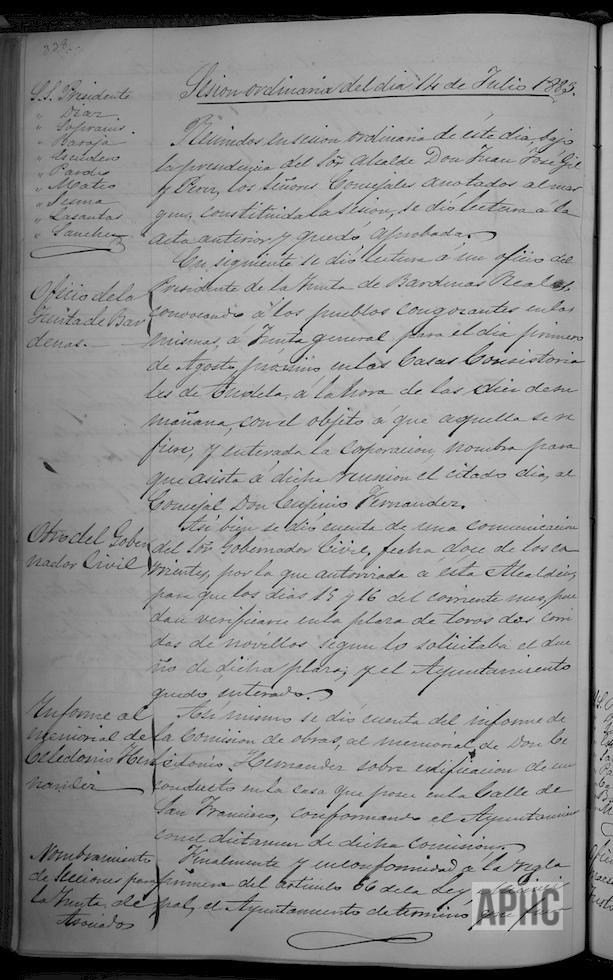 328.
Sesion ordinaria del dia 14 de Julio 1883.
S.S. Presidente
" Diaz
" Sopranis
" Baraja
" Escudero
" Pardo
" Mateo
" Sesma
" Lasantas
" Sanchez
Reunidos en sesion ordinaria de este dia, bajo
la presidencia del Sor. Alcalde Don Juan José Gil
y Perez, los Señores Concejales anotados al mar
gen, constituida la sesion, se dió lectura á la
acta anterior y quedó aprobada.
Oficio de la
Junta de Bar
denas.
En siguiente se dió lectura á un oficio del
Presidente de la Junta de Bardenas Reales,
convocando á los pueblos congozantes en las
mismas, á Junta general para el dia primero
de Agosto próximo en las Casas Consistoria
les de Tudela, á la hora de las diez de su
mañana, con el objeto á que aquella se re
fiere, y enterada la Corporacion, nombra para
que asista á dicha reunion el citado dia, al
Concejal Don Fernandez.
Otro del Gober
nador Civil
Asi bien se dió cuenta de una comunicacion
del Sor. Gobernador Civil, fecha doce de los co
rrientes, por la que autorizada á esta Alcaldia,
para que los dias 15 y 16 del corriente mes, pue
dan verificarse en la plaza de toros dos corri
das de novillos segun lo solicitaba el due
ño de dicha plaza; y el Ayuntamiento
quedó enterado.
Informe al
memorial de
Celedonio Her
nandez
Asi mismo se dió cuenta del informe de
la Comision de obras, al memorial de Don Ce
ledonio Hernandez sobre edificacion de un
conducto en la casa que posee en la Calle de
San Francisco, conformando el Ayuntamiento
con el dictamen de dicha comision.
Nombramiento
de secciones para
la Junta de
Asociados
Finalmente y en conformidad á la regla
primera del articulo 66 de la Ley Munici
pal, el Ayuntamiento determinó que
APHC